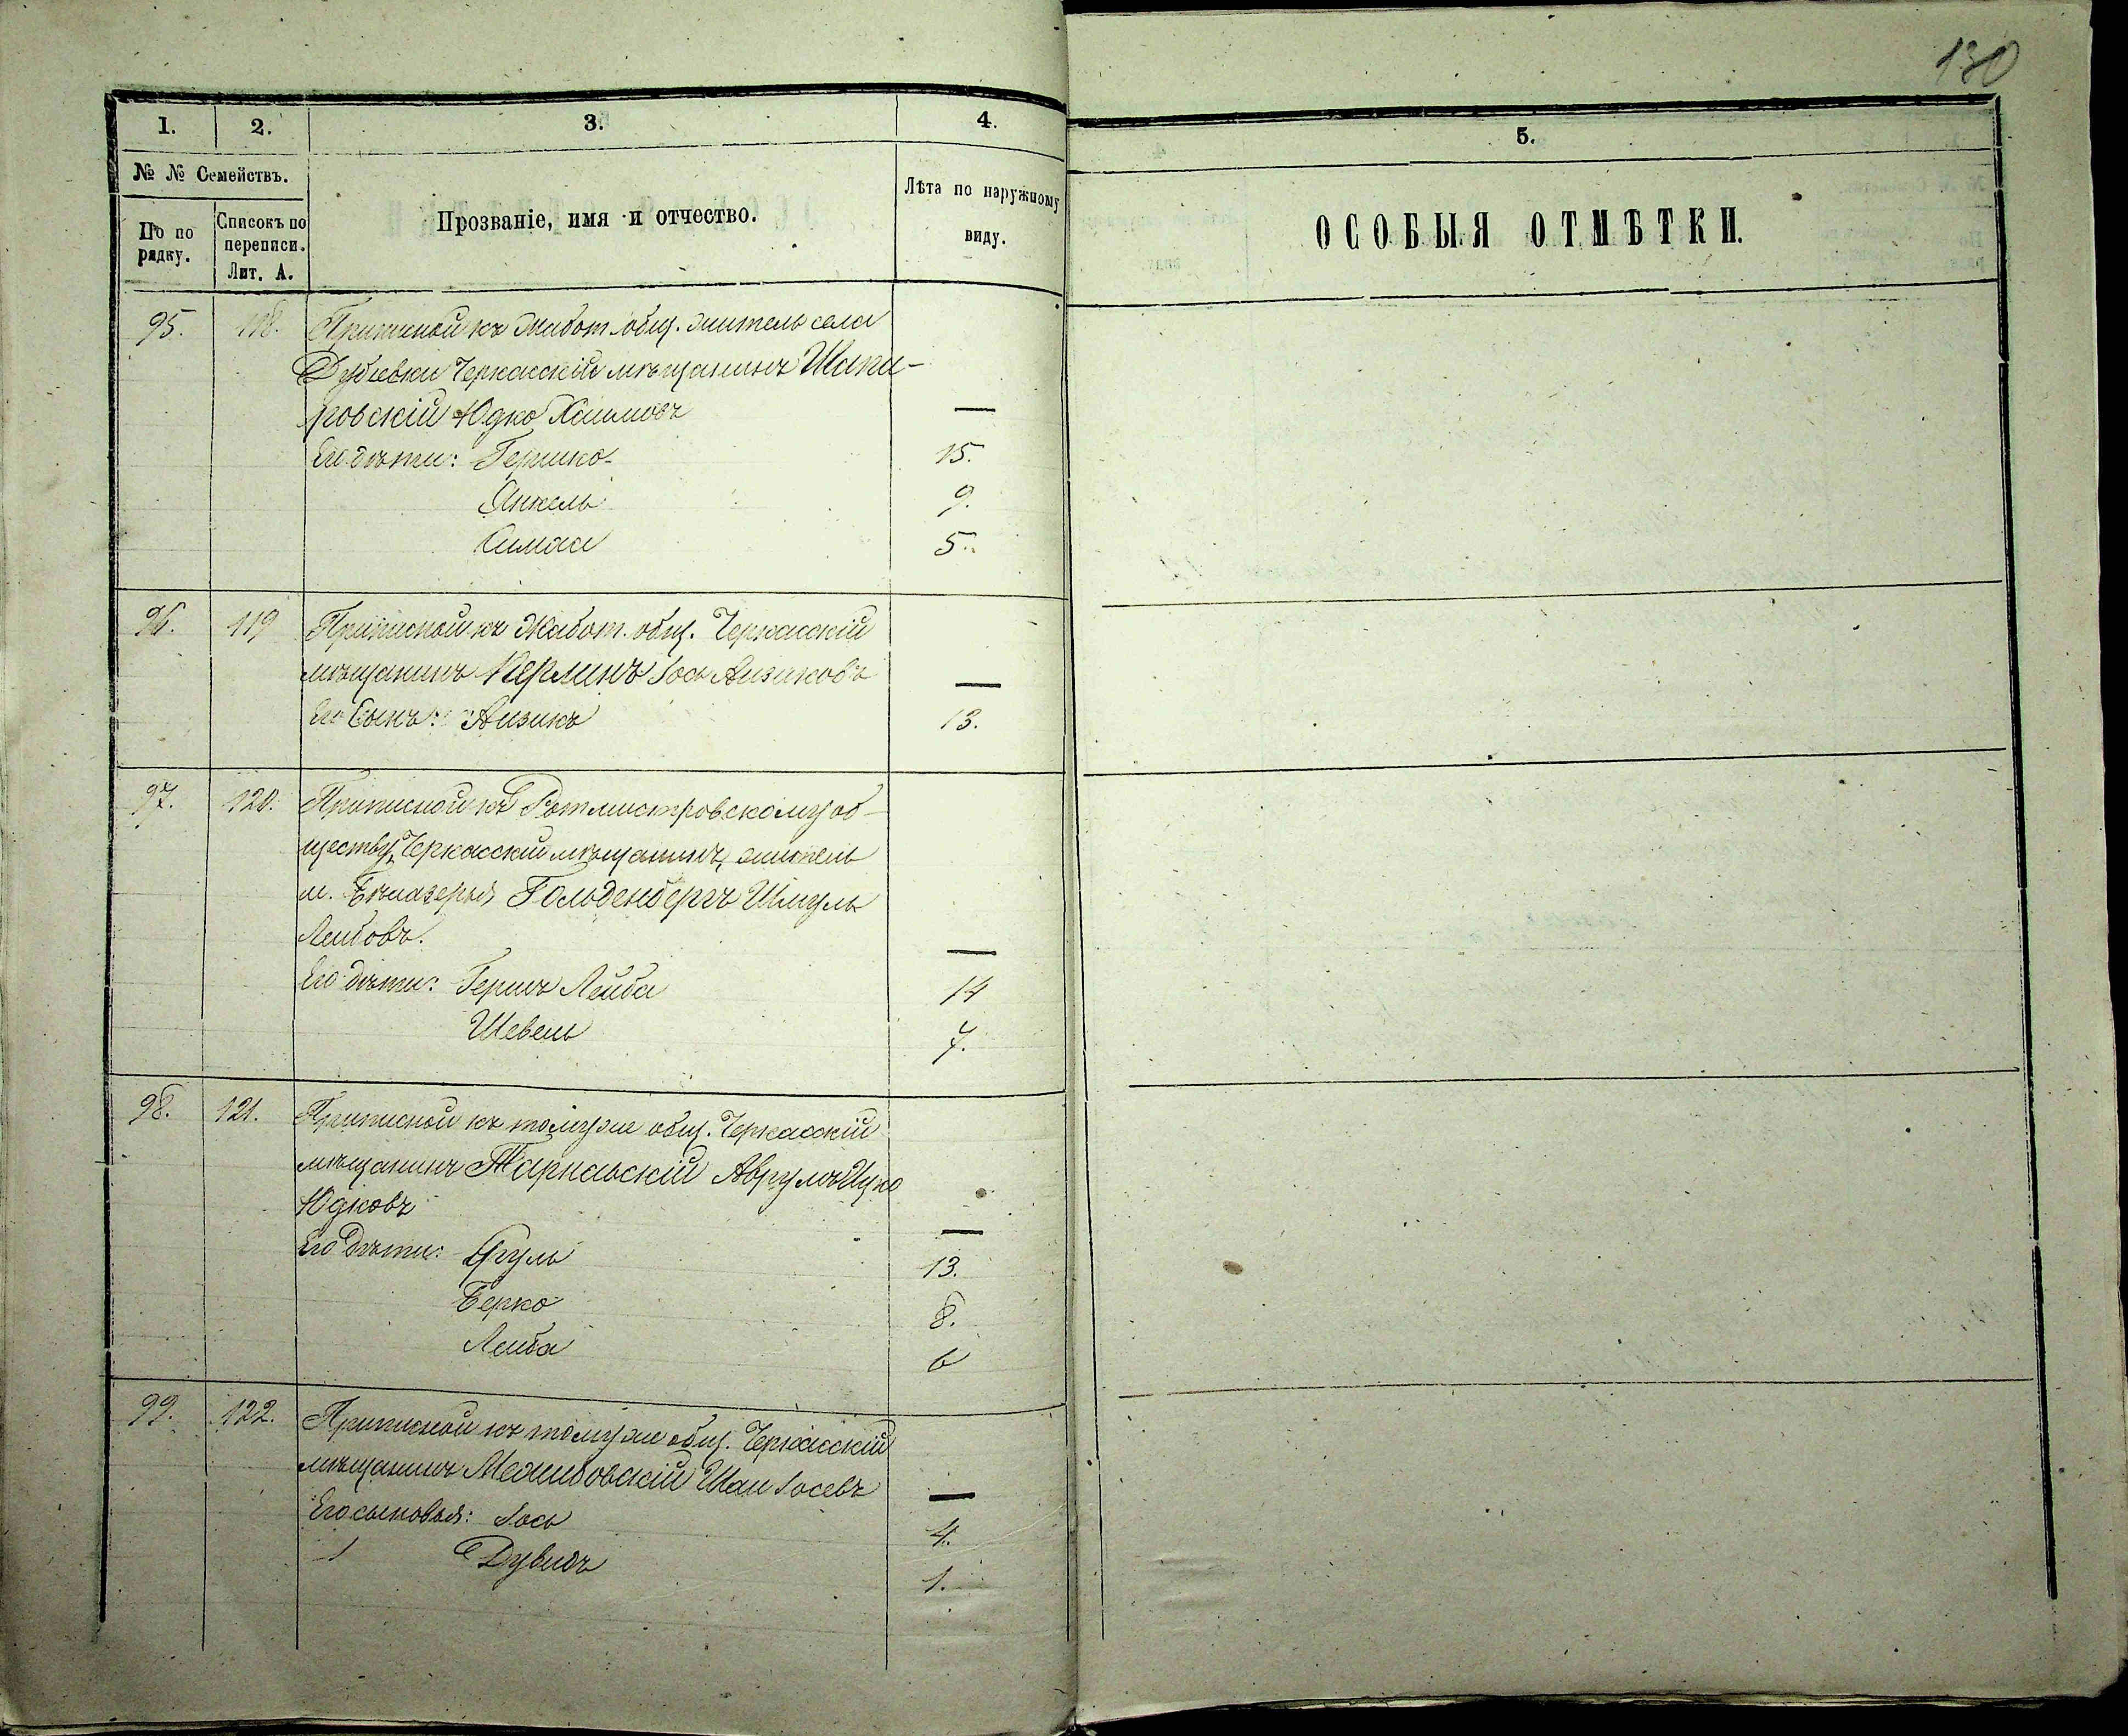 130
1. 2. 3. 4. 5.
№ № Семействъ.
По по рядку.
Списокъ по переписи. Лит. А.
Прозваніе, имя и отчество.
Лѣта по наружному виду.
ОСОБЫЯ ОТМѢТКИ.
95. 118. Приписной къ Жабот. общ. житель села
Дубіевки Черкасскій мѣщанинъ Шапи-
ровскій Юдко Хаимовъ —
Его дѣти: Гершко 15.
Янкель 9.
Симха 5.
96. 119 Приписной къ Жабот. общ. Черкасскій
мѣщанинъ Керлинъ Іось Аизиковъ —
Его Сынъ: Аизикъ 13.
97. 120. Приписной къ Ротмистровскому об-
ществу, Черкасскій мѣщанинъ, житель
м. Бѣлазерья, Гольденбергъ Шмуль
Лейбовъ. —
Его дѣти: Гершъ Лейба 14
Шевель 7.
98. 121. Приписной къ томуже общ. Черкасскій
мѣщанинъ Тарнавскій Аврумъ Ицко
Юдковъ —
Его Дѣти: Сруль 13.
Берко 8.
Лейба 6
99. 122. Приписной къ томуже общ. Черкасскій
мѣщанинъ Межибовскій Шаи Іосевъ —
Его сыновья: Іось 4.
1 Дувидъ 1.